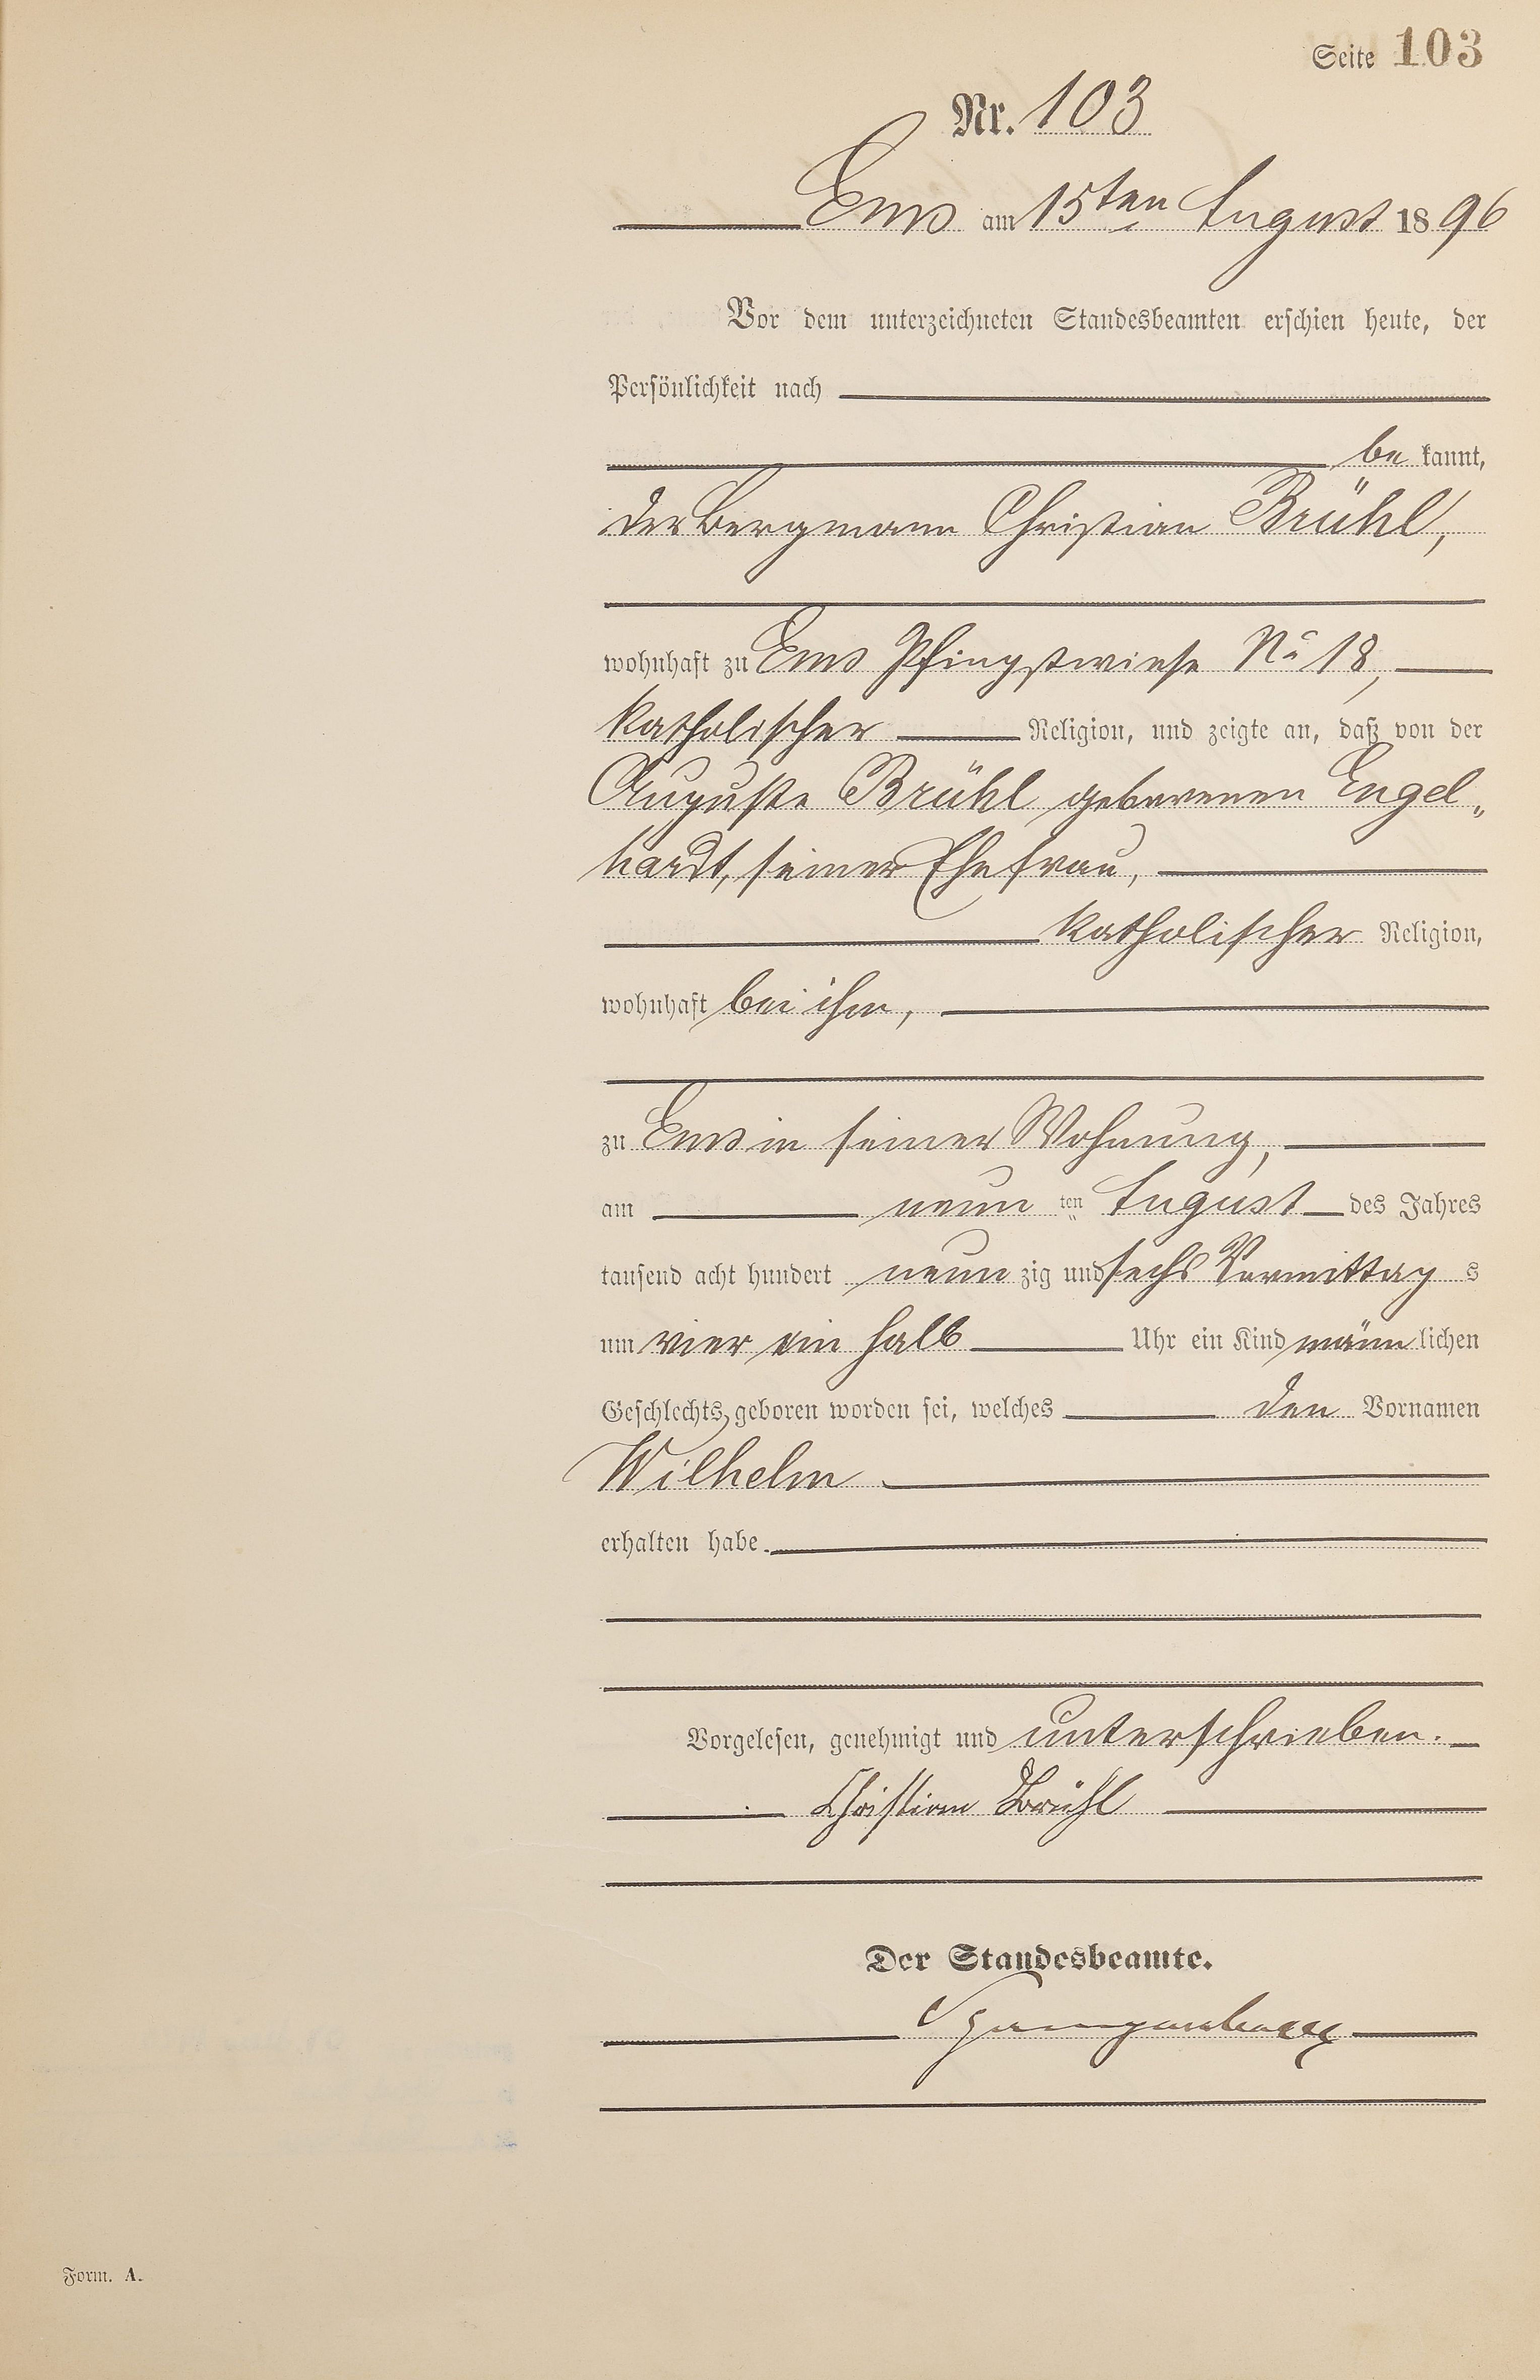 Seite 103
Nr. 103
Ems am 15ten August 1896
Vor dem unterzeichneten Standesbeamten erschien heute, der
Persönlichkeit nach
be kannt,
der Bergmann Christian Brühl,
wohnhaft zu Ems Pfingstwiese No 18,
katholischer Religion, und zeigte an, daß von der
Auguste Brühl geborenen Engel„
hardt, seiner Ehefrau,
katholischer Religion,
wohnhaft bei ihm,
zu Ems in seiner Wohnung,
am neun ten August des Jahres
tausend acht hundert neun zig und sechs Vormittag s
um vier ein halb Uhr ein Kind männ lichen
Geschlechts geboren worden sei, welches den Vornamen
Wilhelm
erhalten habe.
Vorgelesen, genehmigt und unterschrieben.
Christian Brühl
Der Standesbeamte.
Form. A.